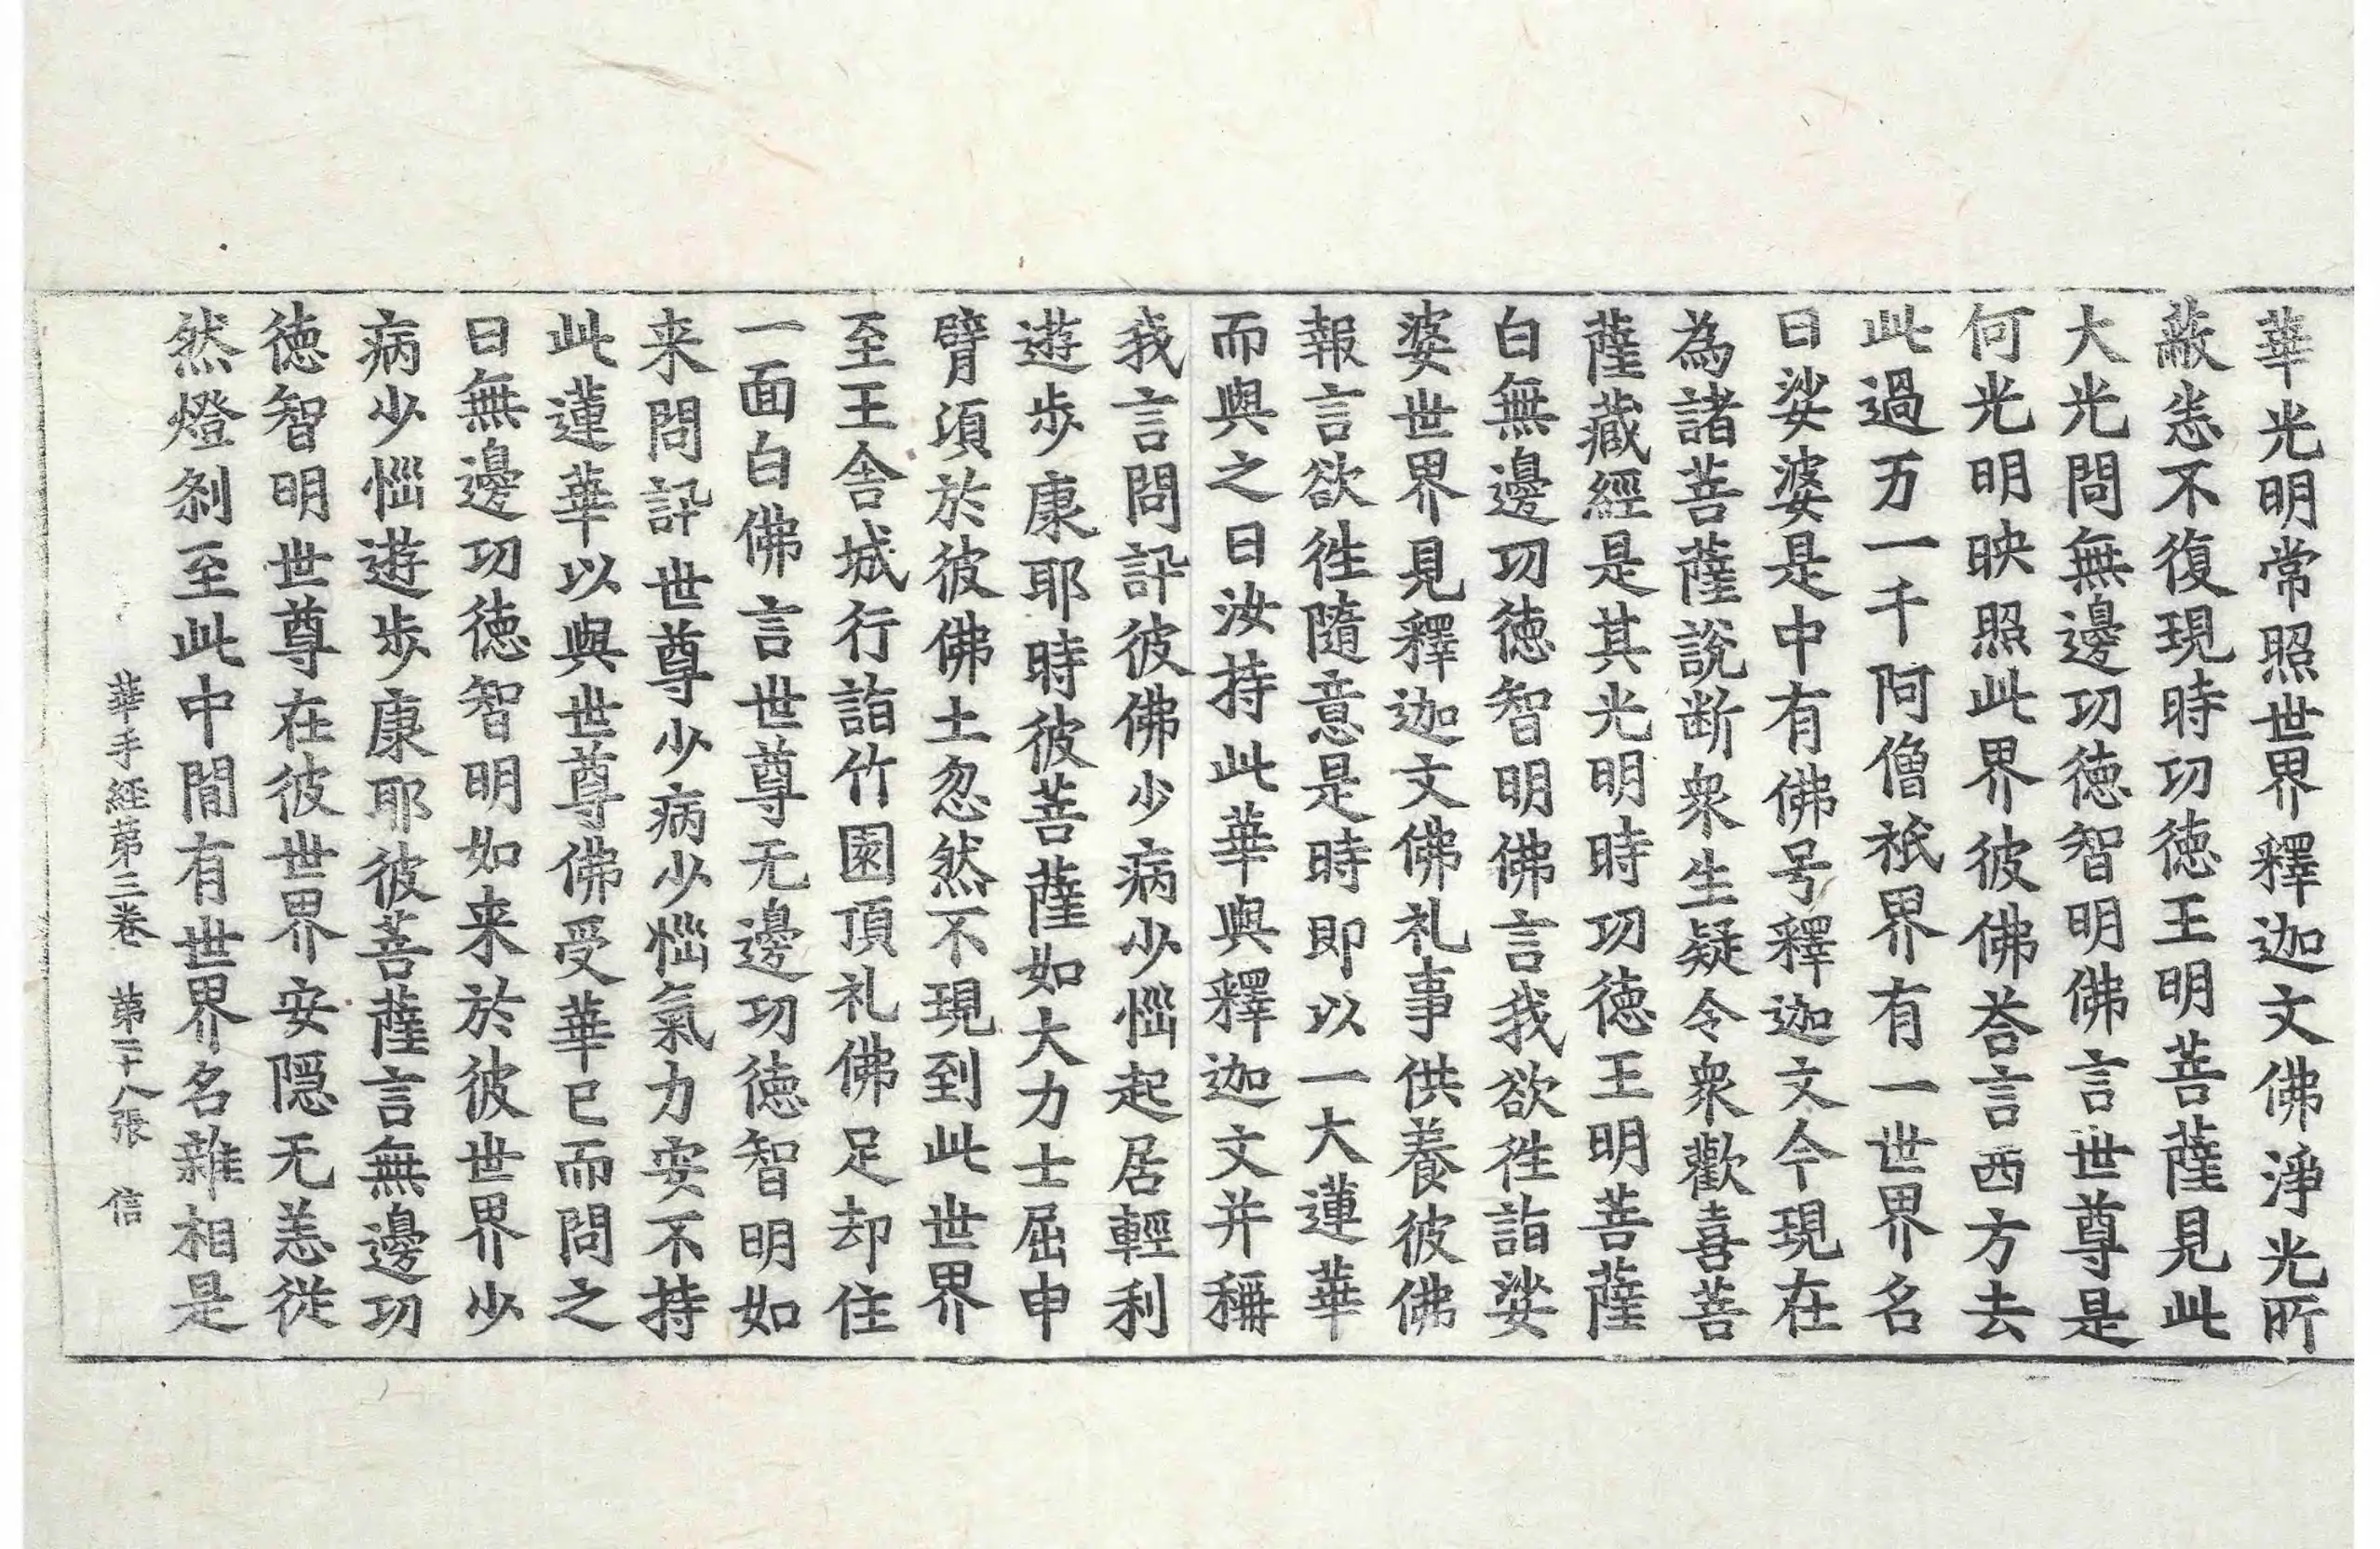 華光明常照世界釋迦文佛淨光所
蔽悉不復現時功德王明菩薩見此
大光問無邊功德智明佛言世尊是
何光明映照此界彼佛荅言西方去
此過万一千阿僧祇界有一世界名
曰娑婆是中有佛号釋迦文今現在
為諸菩薩說斷衆生疑令衆歡喜菩
薩藏經是其光明時功德王明菩薩
白無邊功德智明佛言我欲徃詣娑
婆世界見釋迦文佛礼事供養彼佛
報言欲徃隨意是時即以一大蓮華
而與之曰汝持此華與釋迦文并稱
我言問訊彼佛少病少惱起居輕利
遊步康耶時彼菩薩如大力士屈申
臂頃於彼佛土忽然不現到此世界
至王舍城行詣竹園頂礼佛足却住
一面白佛言世尊无邊功德智明如
来問訊世尊少病少惱氣力安不持
此蓮華以與世尊佛受華已而問之
曰無邊功德智明如来於彼世界少
病少惱遊步康耶彼菩薩言無邊功
德智明世尊在彼世界安隱无恙從
然燈刹至此中間有世界名雜相是
華手經第三卷　第二十八張　信